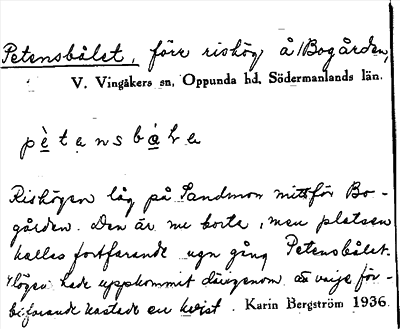 Petensbålet, förr rishög å Bogården,
V. Vingåkers sn, Oppunda hd. Södermanlands län.
pètansbàla
Rishögen låg på Sandmon mittför Bo-
gården. Den är nu borta, men platsen
kallas fortfarande ngn gång Petensbålet.
Högen hade uppkommit därigenom att varje för-
bifarande kastade en kvist. Karin Bergström 1936.